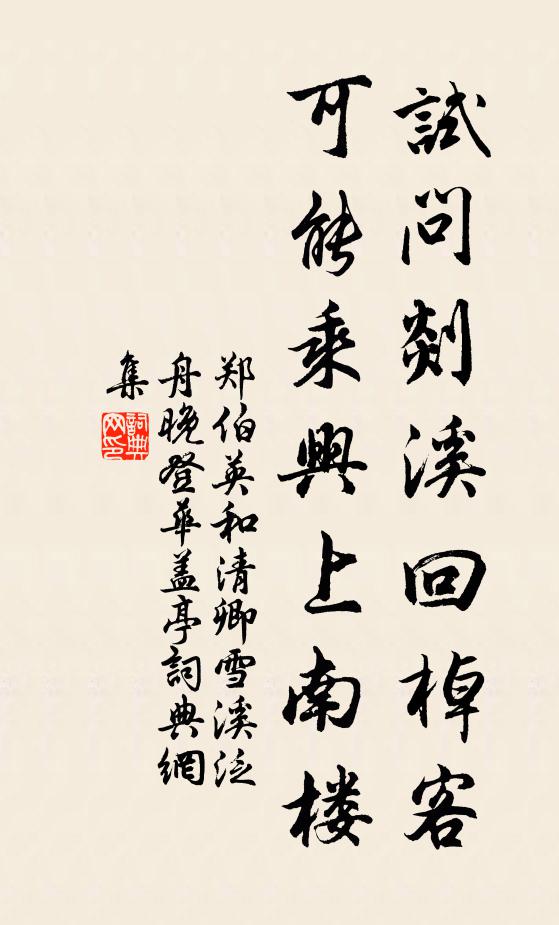 試問剡溪回棹客
可能乘興上南楼
郑伯英和清卿雪溪泛
舟晚登華盖亭詞典網
集
詞典
网印